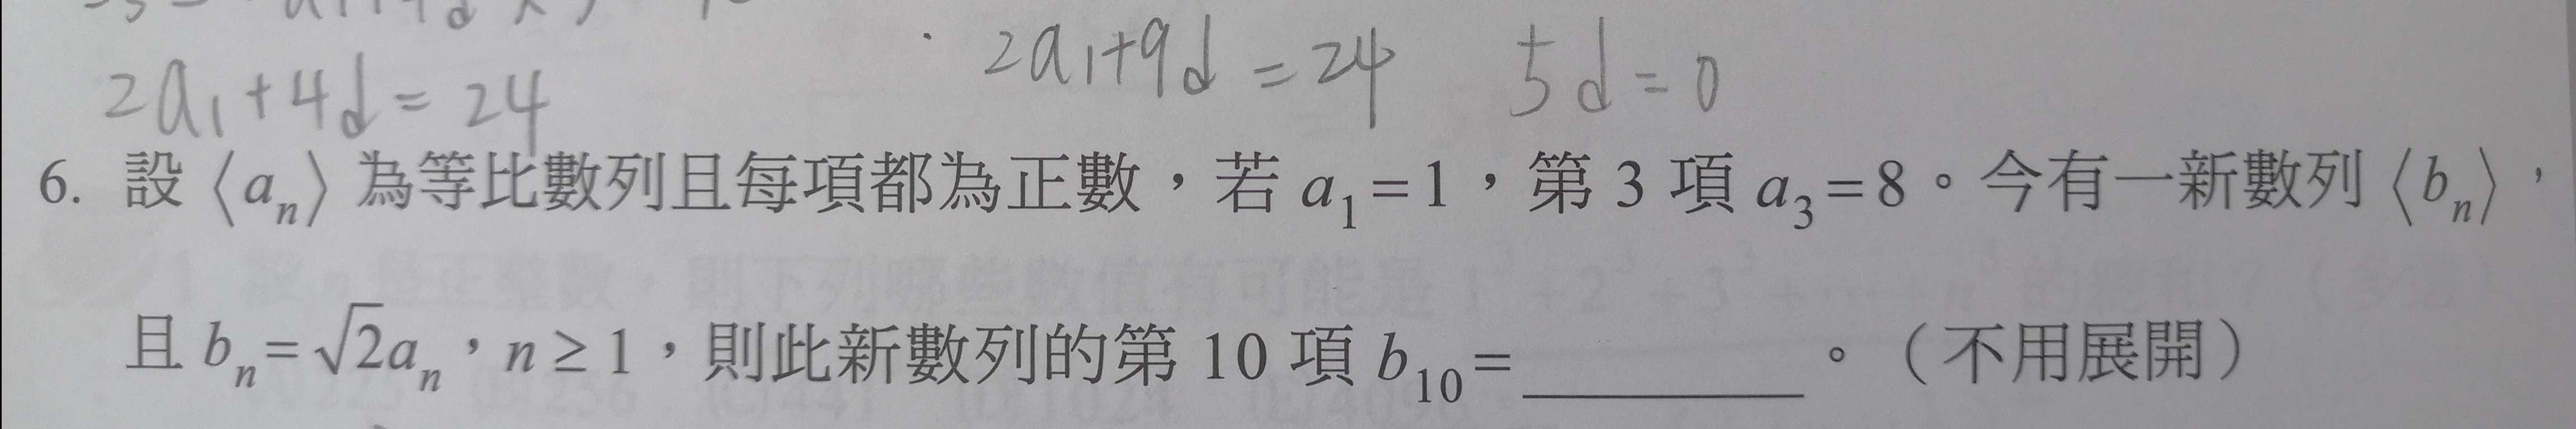 2a₁+4d=24
2a₁+9d=24 5d=0
6. 設⟨aₙ⟩為等比數列且每項都為正數，若 a₁=1，第 3 項 a₃=8。今有一新數列⟨bₙ⟩，
且 bₙ=√2aₙ，n≥1，則此新數列的第 10 項 b₁₀=________。（不用展開）